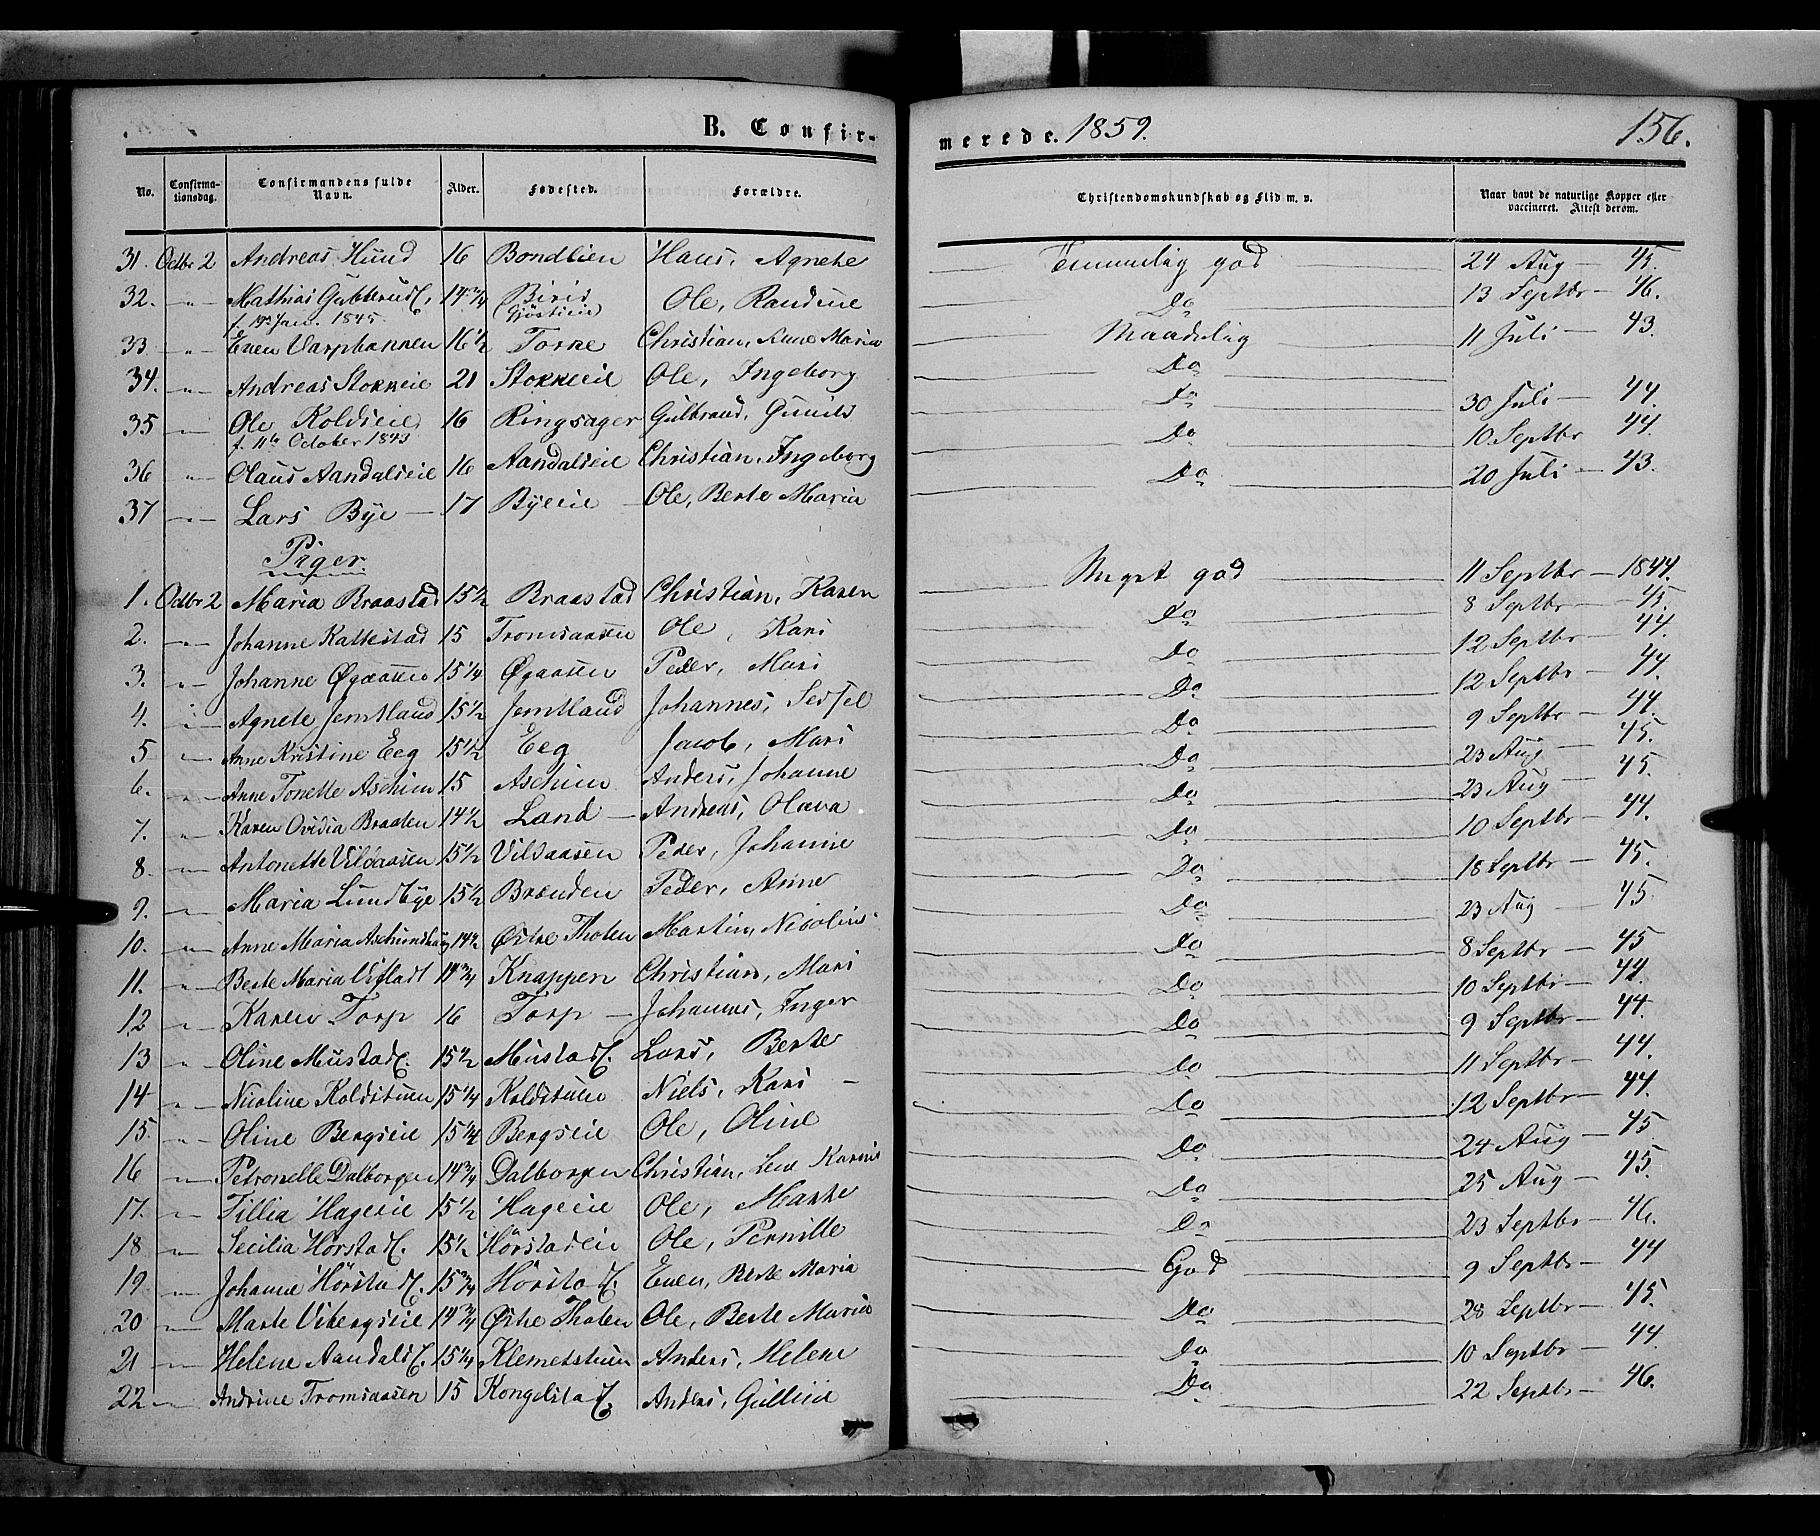 B. Confir-
merede. 1859. 156.
No. Confirma-tionsdag. Confirmandens fulde Navn. Alder. Fødested. Forældre. Christendomskundskab og Flid m. v. Naar havt de naturlige Kopper eller vaccineret. Attest derom.
31. Octbr 2 Andreas Hund 16 Bondlien Hans, Agnethe Temmelig god 24 Aug — 45.
32. " Mathias Gubberud, 14 3/4 Biris Ole, Randine Do 13 Septbr — 46.
f. 19 Jan. 1845. (Gjøstieie)
33 " Even Varpbakken 16 1/2 Torke Christian, Anne Maria Maadelig 11 Juli — 43.
34. " Andreas Stokkeie 21 Stokkeeie Ole, Ingeborg Do
35 " Ole Koldseie 16 Ringsager Gulbrand, Do 30 Juli — 44.
f. 11te October 1843
36 " Olaus Aandalseie 16 Aandalseie Christian, Ingeborg Do 10 Septbr 44.
37 " Lars Bye — 17 Byeeie — Ole, Berte Maria Do 20 Juli — 43.
Piger
1. Octbr 2 Maria Braastad 15 1/2 Braastad Christian, Karen Meget god 11 Septbr — 1844.
2. " Johanne Kattestad 15 Tromsaasen Ole, Kari Do 8 Septbr — 45.
3. " Johanne Øgaasen 15 1/4 Øgaasen Peder, Mari Do 12 Septbr 44.
4. " Agnete Jemtland 15 1/2 Jemtland Johannes, Sedsel Do 12 Septbr — 44.
5 " Anne Kristine Eeg 15 1/2 Eeg Jacob, Mari Do 9 Septbr — 44.
6. " Anne Tonette Aschim 15 Aschim Anders, Johanne Do 23 Aug 45.
7. " Karen Ovidia Braaten 14 1/2 Land — Andreas, Olava Do 23 Aug — 45.
8 " Antonette Vildaasen 15 1/2 Vildaasen Peder, Johanne Do 10 Septbr — 44.
9. " Maria Lundbye 15 1/2 Brænden Peder, Anne Do 18 Septbr — 45.
10. " Anne Maria Aschimshaug 14 1/2 Østre Thoten Martin, Nicoline Do 23 Aug — 45
11. " Berte Maria Viflat 14 3/4 Knappen Christian, Mari Do 8 Septbr — 45
12 " Karen Torp 16 Torp — Johannes, Inger Do 10 Septbr — 44.
13 " Oline Mustad. 15 1/2 Mustad. Lars, Berte Do 9 Septbr — 44.
14 " Nicoline Koldstuen 15 1/4 Koldstuen Niels, Kari — Do 11 Septbr — 44.
15. " Oline Bergseie 15 1/4 Bergseie Ole, Oline Do 12 Septbr — 44.
16 " Petronelle Dalborgen 14 3/4 Dalborgen Christian, Lene Karine Do 24 Aug — 45
17. " Tillia Hageeie 15 1/2 Hageeie Ole, Marte Do 25 Aug — 45.
18 " Secilia Hørstad. 15 1/2 Hørstadeie Ole, Pernille Do 23 Septbr — 46.
19 " Johanne Hørstad. 15 3/4 Hørstad. Even, Berte Maria God 9 Septbr — 44
20 " Marte Vibergseie 14 3/4 Østre Thoten Ole, Berte Maria Do 28 Septbr — 45.
21 " Helene Aandalsd. 15 1/4 Klemetstuen Anders, Helene Do 10 Septbr — 44.
22 " Andrine Tromsaasen 15 Kongelstad. Anders, Gulline Do 22 Septbr — 46.